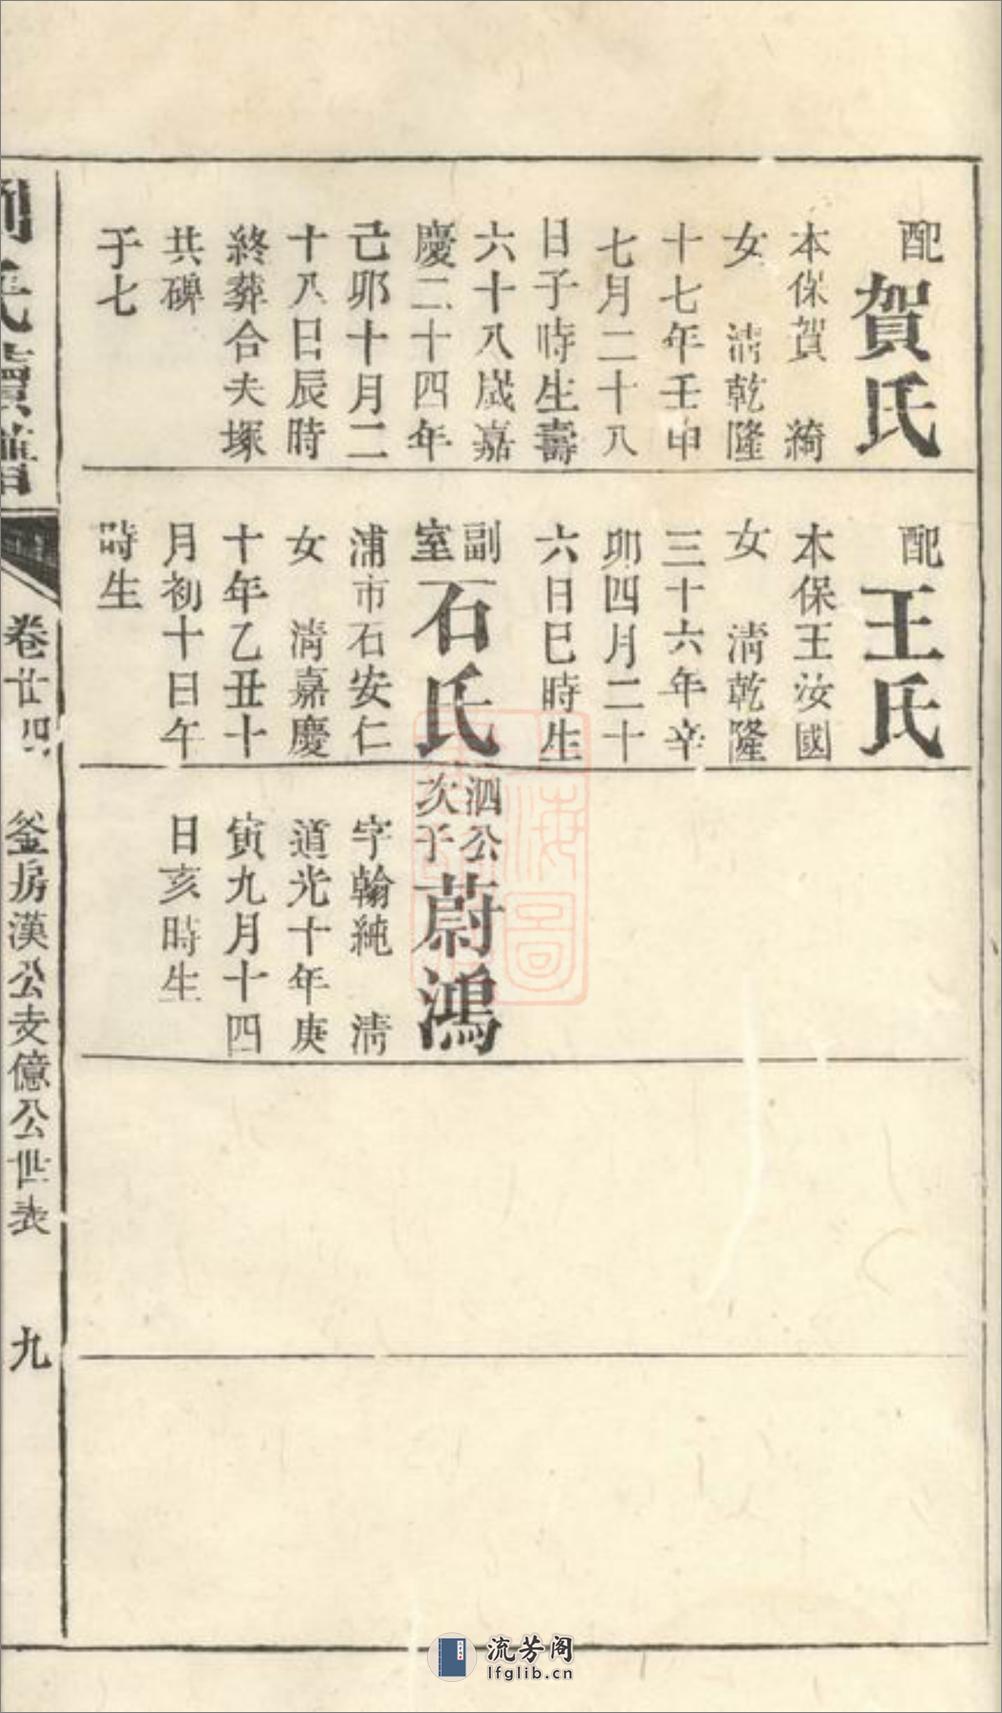 配賀氏
本保賀　綺
女　淸乾隆
十七年壬申
七月二十八
日子時生壽
六十八歲嘉
慶二十四年
己卯十月二
十八日辰時
終葬合夫塚
共碑
于七
配王氏
本保王汝國
女　淸乾隆
三十六年辛
卯四月二十
六日巳時生
副室石氏
浦市石安仁
女　淸嘉慶
十年乙丑十
月初十日午
時生
泗公次子蔚鴻
字翰純　淸
道光十年庚
寅九月十四
日亥時生
劉氏續譜
卷廿四
釜房漢公支億公世表
九
流芳阁
lfglib.cn